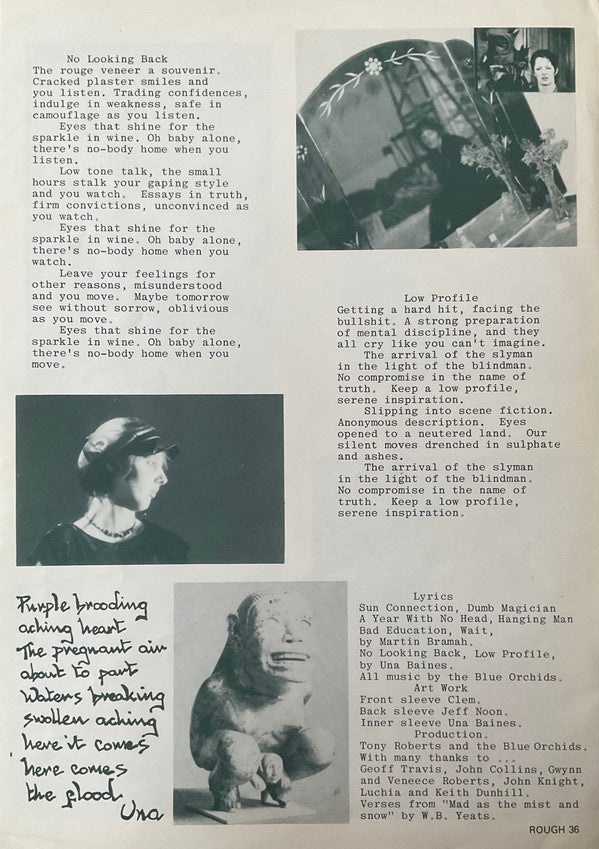 No Looking Back
The rouge veneer a souvenir.
Cracked plaster smiles and
you listen. Trading confidences,
indulge in weakness, safe in
camouflage as you listen.
Eyes that shine for the
sparkle in wine. Oh baby alone,
there's no-body home when you
listen.
Low tone talk, the small
hours stalk your gaping style
and you watch. Essays in truth,
firm convictions, unconvinced as
you watch.
Eyes that shine for the
sparkle in wine. Oh baby alone,
there's no-body home when you
watch.
Leave your feelings for
other reasons, misunderstood
and you move. Maybe tomorrow
see without sorrow, oblivious
as you move.
Eyes that shine for the
sparkle in wine. Oh baby alone,
there's no-body home when you
move.
Low Profile
Getting a hard hit, facing the
bullshit. A strong preparation
of mental discipline, and they
all cry like you can't imagine.
The arrival of the slyman
in the light of the blindman.
No compromise in the name of
truth. Keep a low profile,
serene inspiration.
Slipping into scene fiction.
Anonymous description. Eyes
opened to a neutered land. Our
silent moves drenched in sulphate
and ashes.
The arrival of the slyman
in the light of the blindman.
No compromise in the name of
truth. Keep a low profile,
serene inspiration.
Purple brooding
aching heart
The pregnant air
about to part
Waters breaking
swollen aching
here it comes
here comes
the flood
Una
Lyrics
Sun Connection, Dumb Magician
A Year With No Head, Hanging Man
Bad Education, Wait,
by Martin Bramah.
No Looking Back, Low Profile,
by Una Baines.
All music by the Blue Orchids.
Art Work
Front sleeve Clem.
Back sleeve Jeff Noon.
Inner sleeve Una Baines.
Production.
Tony Roberts and the Blue Orchids.
With many thanks to ...
Geoff Travis, John Collins, Gwynn
and Veneece Roberts, John Knight,
Luchia and Keith Dunhill.
Verses from "Mad as the mist and
snow" by W.B. Yeats.
ROUGH 36